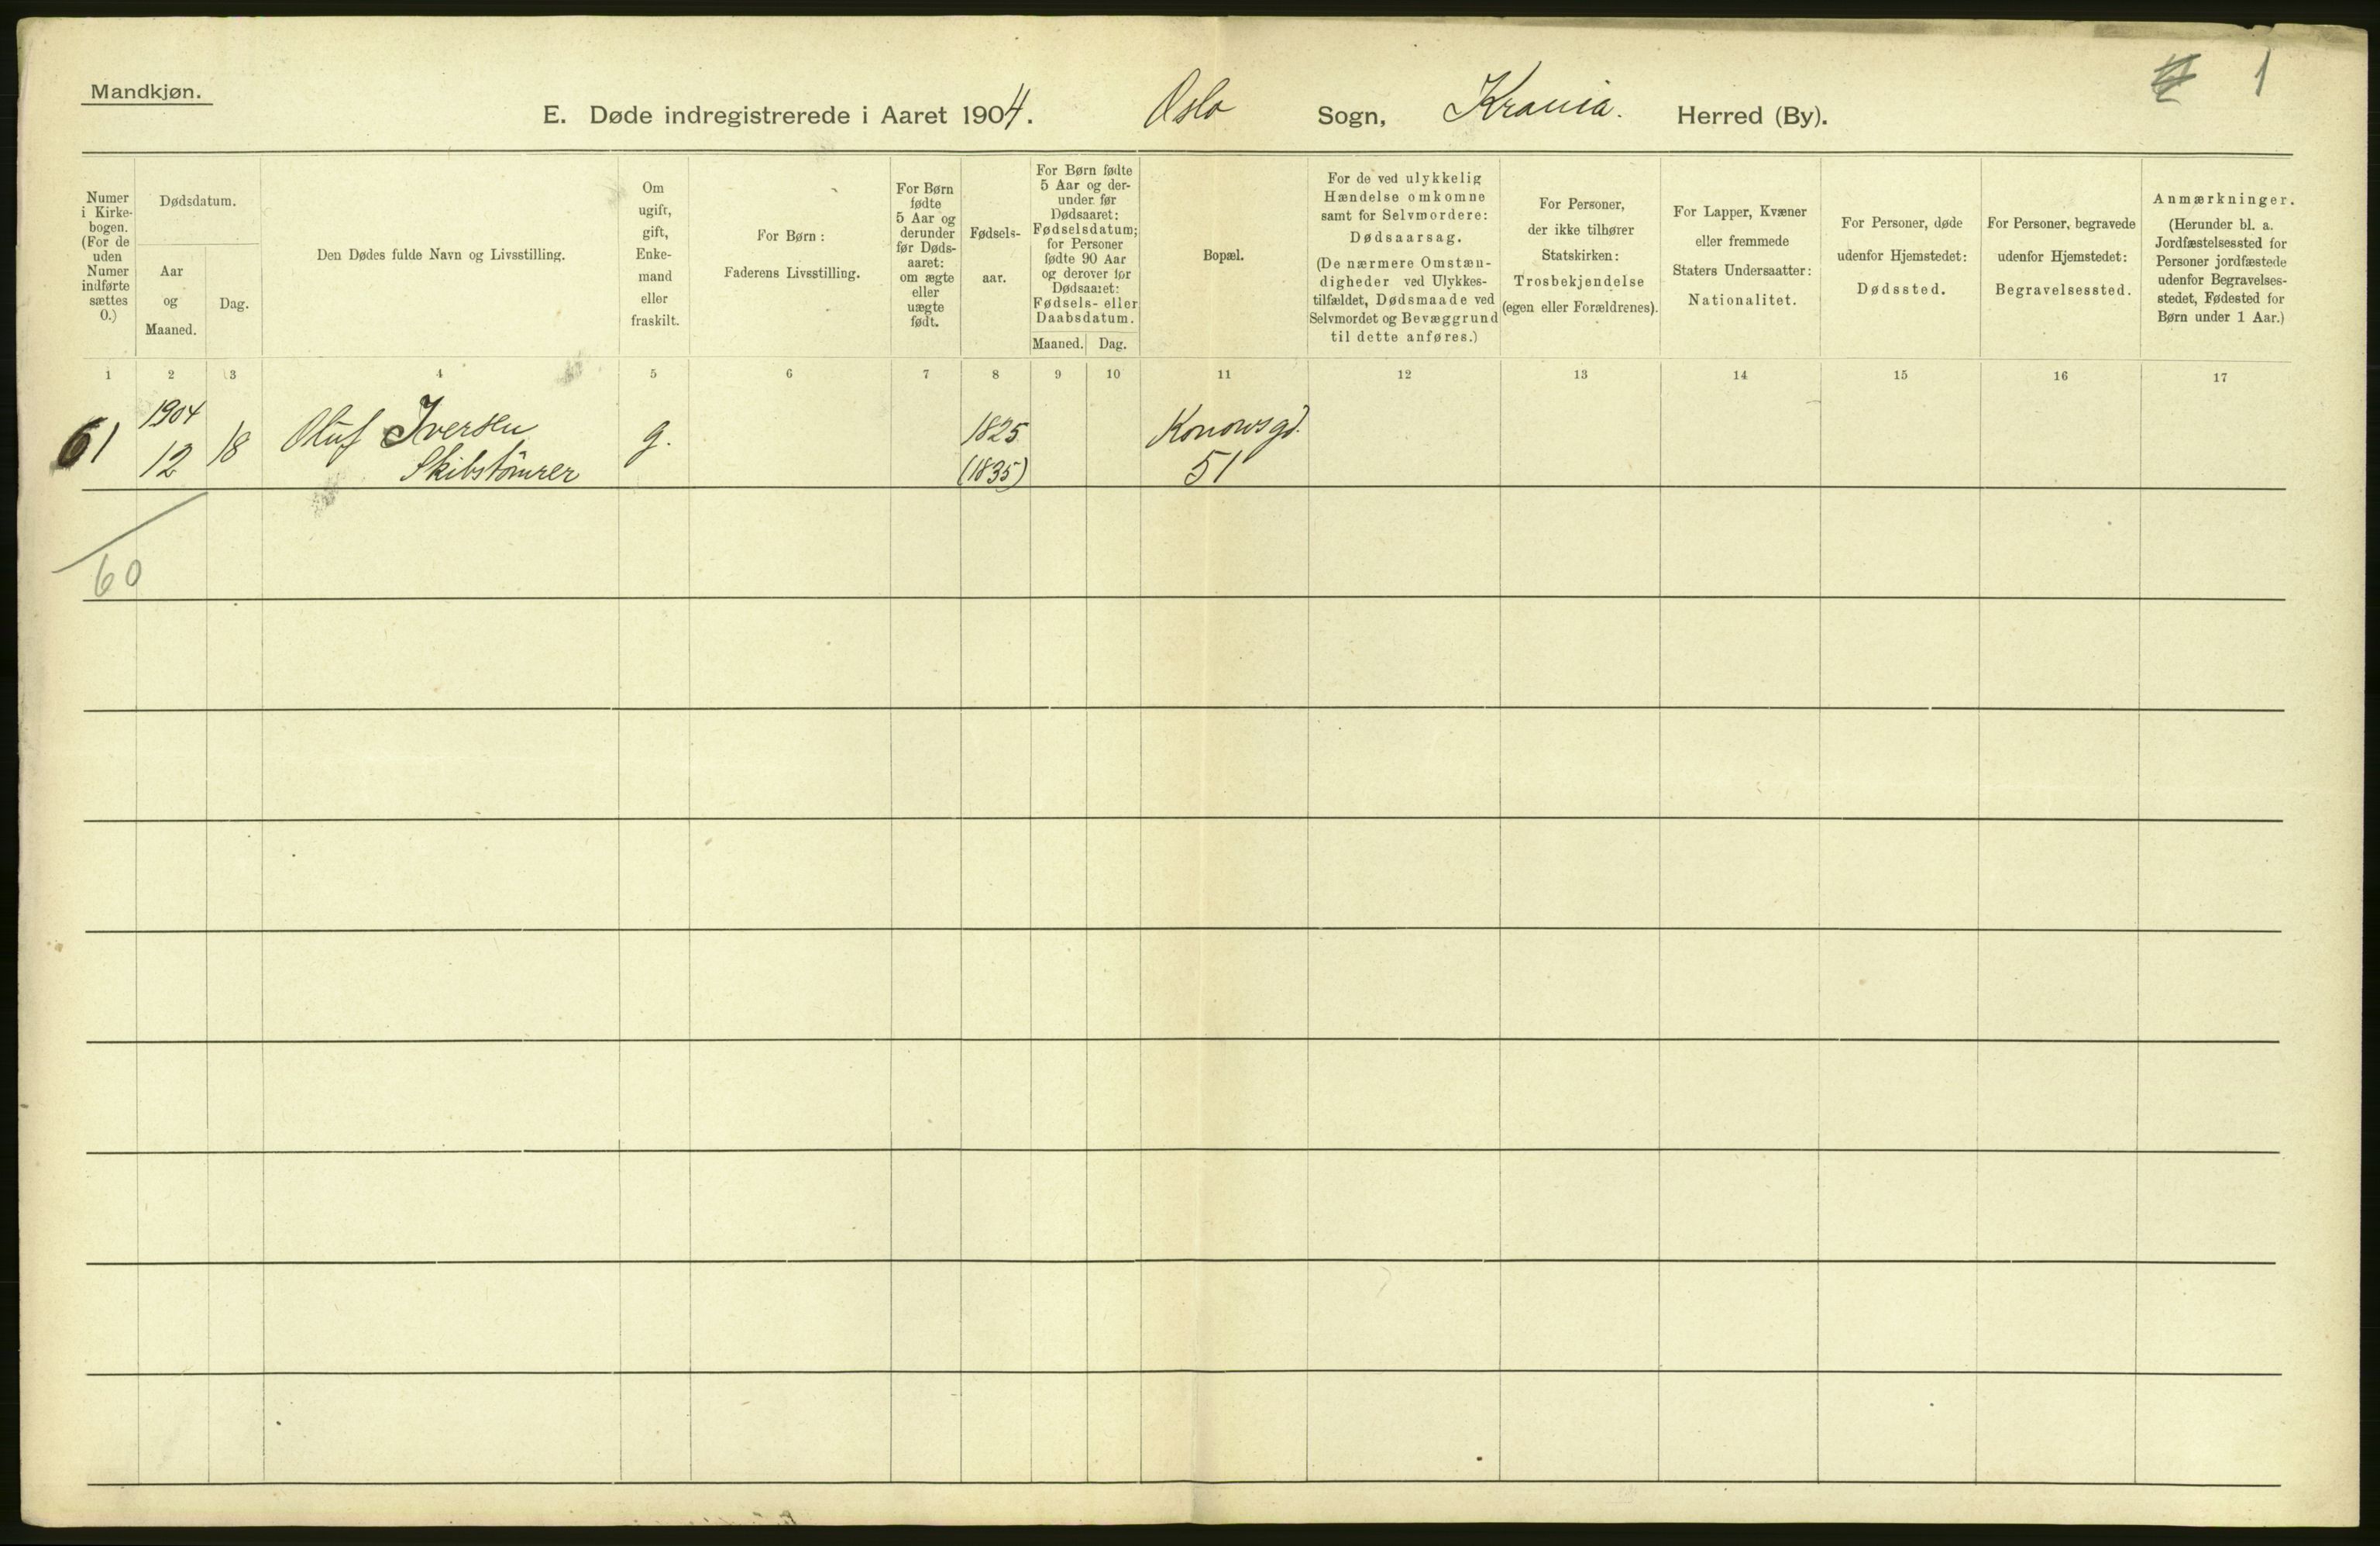 Mandkjøn.
E. Døde indregistrerede i Aaret 1904. Oslo Sogn, Krania. Herred (By).
1
Numer i Kirke-bogen. (For de uden Numer indførte sættes 0.)
Dødsdatum.
Aar og Maaned.
Dag.
Den Dødes fulde Navn og Livsstilling.
Om ugift, gift, Enke-mand eller fraskilt.
For Børn:
Faderens Livsstilling.
For Børn fødte 5 Aar og derunder før Døds-aaret: om ægte eller uægte født.
Fødsels-aar.
For Børn fødte 5 Aar og der-under før Dødsaaret: Fødselsdatum; for Personer fødte 90 Aar og derover før Dødsaaret: Fødsels- eller Daabsdatum.
Maaned. Dag.
Bopæl.
For de ved ulykkelig Hændelse omkomne samt for Selvmordere: Dødsaarsag. (De nærmere Omstæn-digheder ved Ulykkes-tilfældet, Dødsmaade ved Selvmordet og Bevæggrund til dette anføres.)
For Personer, der ikke tilhører Statskirken: Trosbekjendelse (egen eller Forældrenes).
For Lapper, Kvæner eller fremmede Staters Undersaatter: Nationalitet.
For Personer, døde udenfor Hjemstedet: Dødssted.
For Personer, begravede udenfor Hjemstedet: Begravelsessted.
Anmærkninger. (Herunder bl. a. Jordfæstelsessted for Personer jordfæstede udenfor Begravelses-stedet, Fødested for Børn under 1 Aar.)
1 2 3 4 5 6 7 8 9 10 11 12 13 14 15 16 17
61 1904 12 18 Oluf Iversen g. 1825 Konowsgd.
Skibstömrer (1835) 51
60